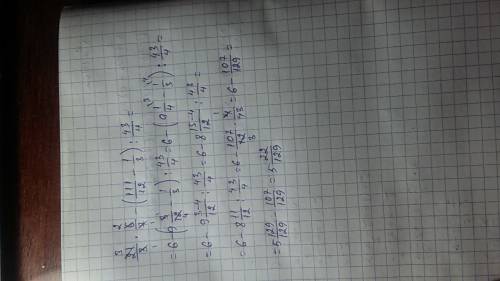 21/8 · /7 - (111/12 - 1/3) : 43/4 =
= 6 - (9 3/12 - 1/3) : 43/4 = 6 - (9 1/4 - 1/3) : 43/4 =
= 6 - 9 3-4/12 : 43/4 = 6 - 8 15-4/12 : 43/4 =
= 6 - 8 11/12 : 43/4 = 6 - 107/12 · 4/43 = 6 - 107/129 =
= 5 129/129 - 107/129 = 5 22/129